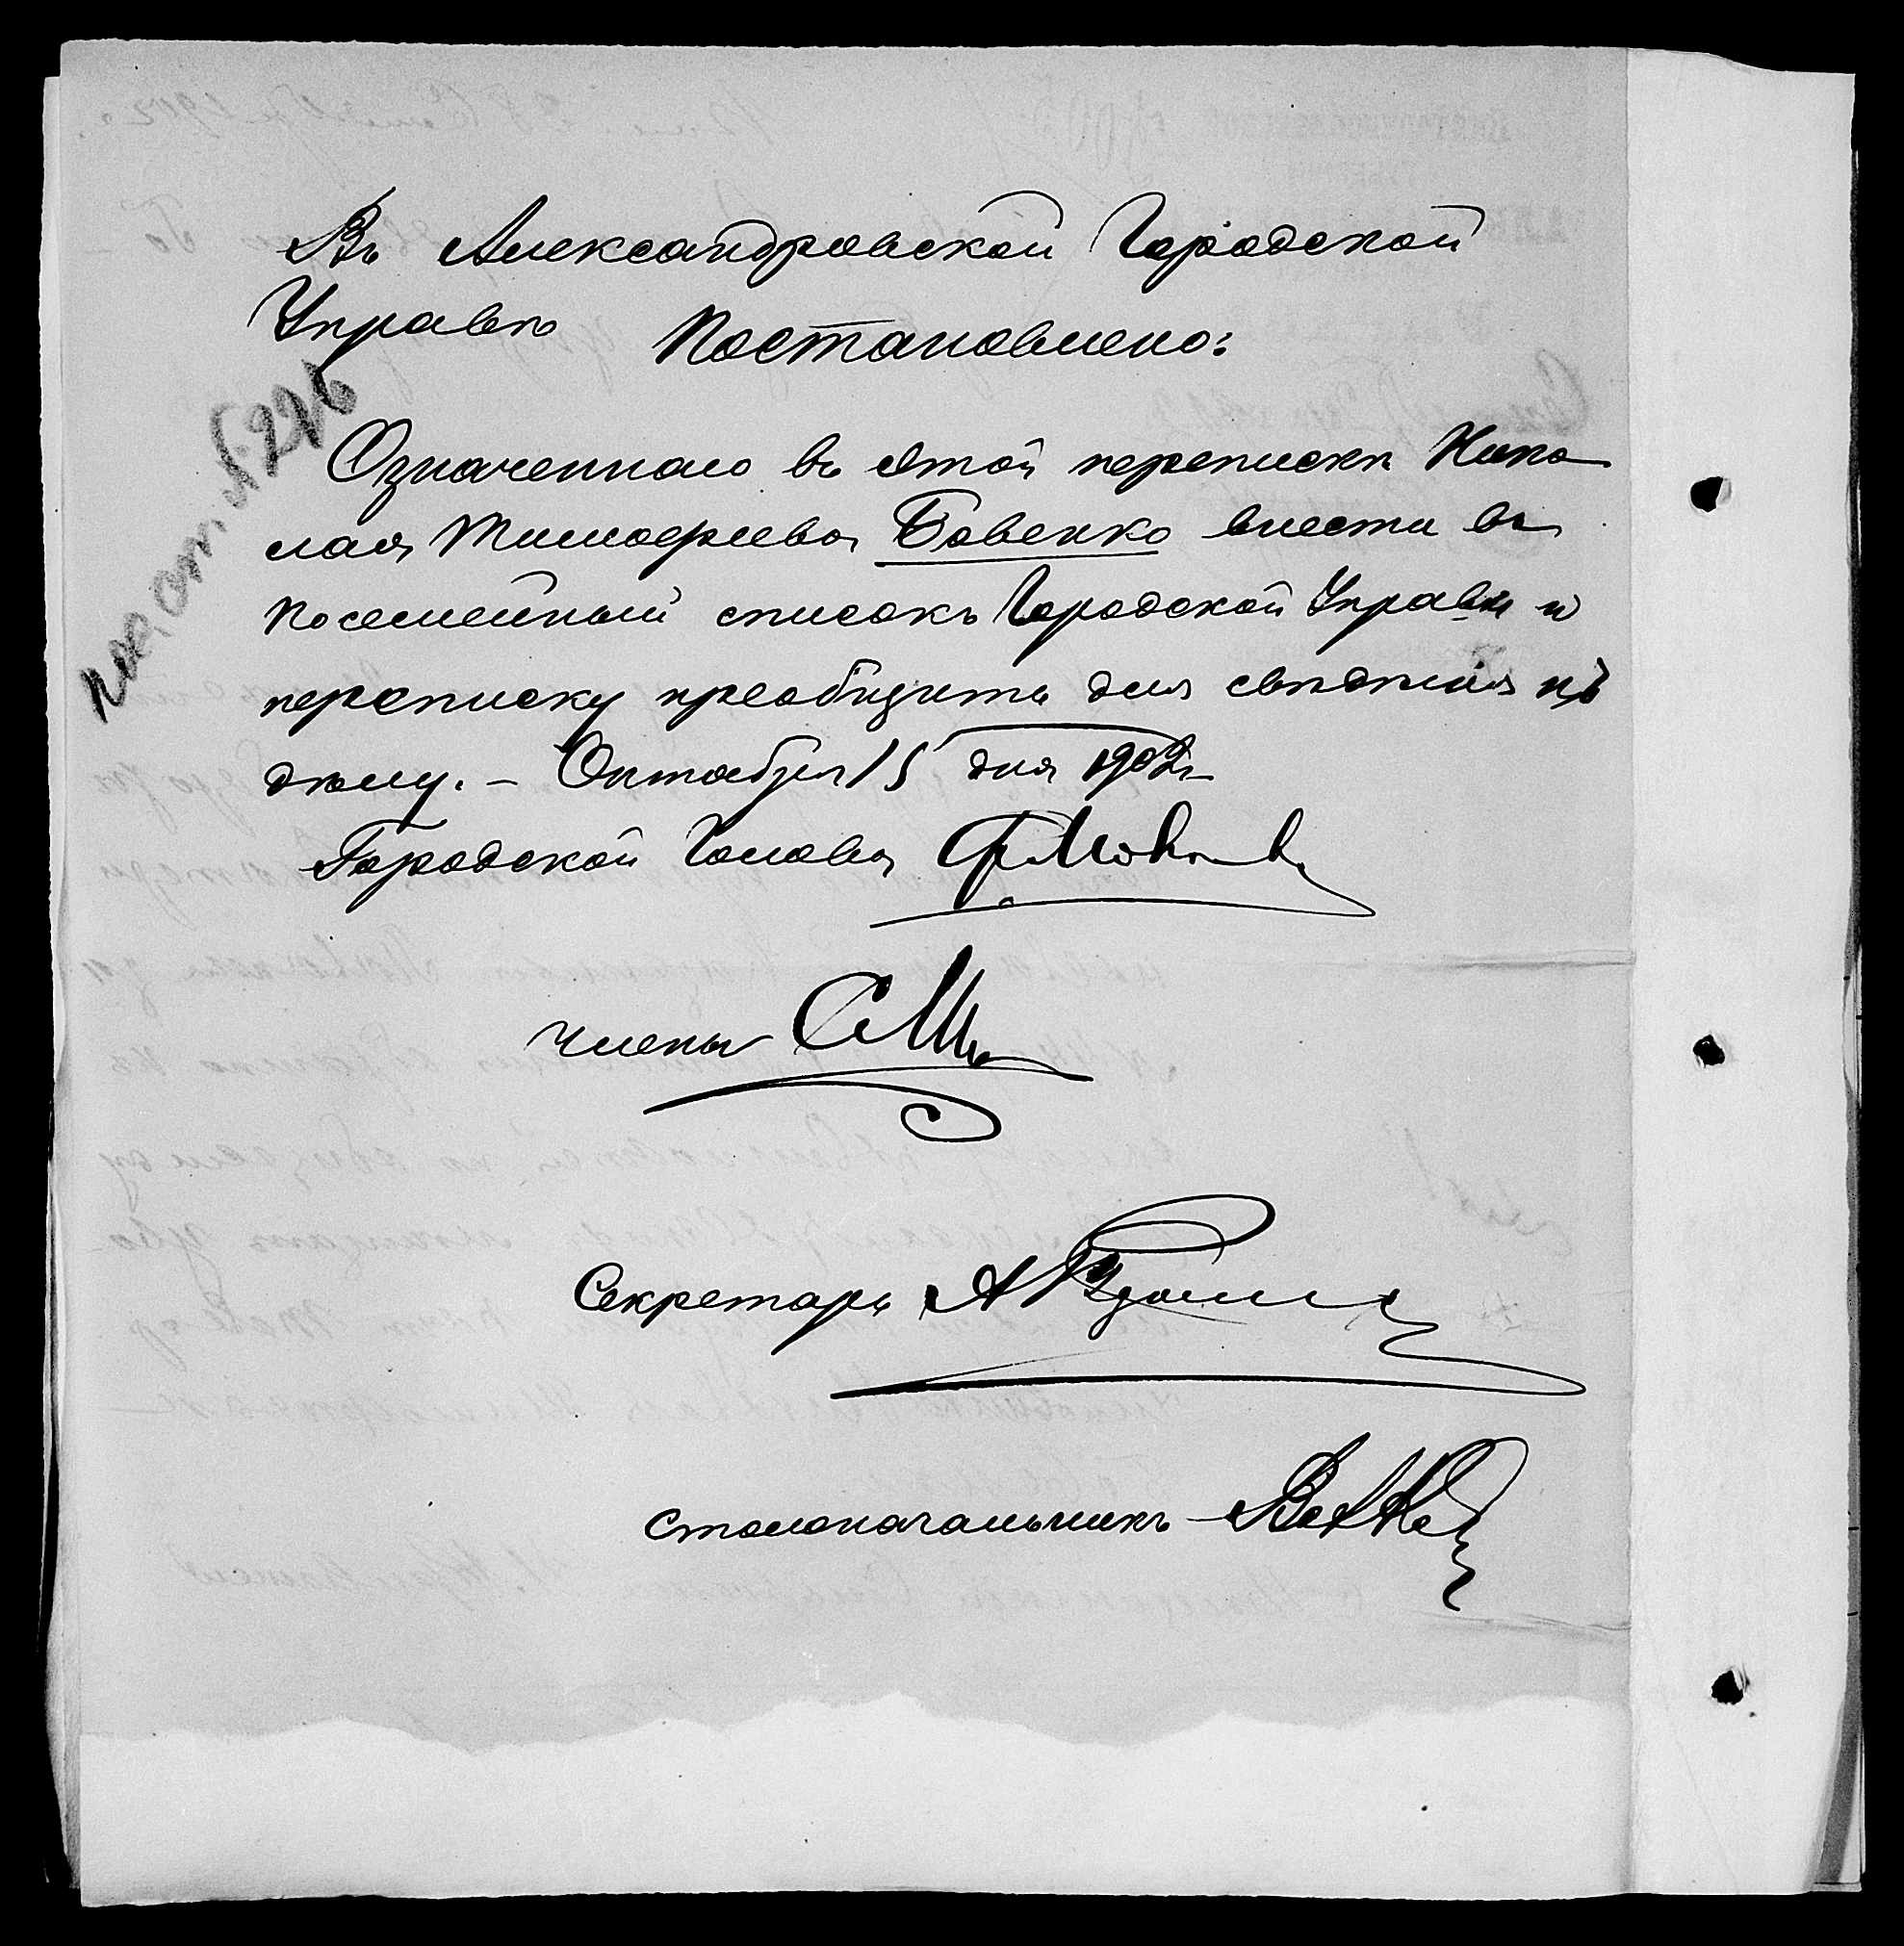 Въ Александровской Городской
Управѣ Постановлено:
Означеннаго въ этой перепискѣ Нико-
лая Тимофеева Бовенко внести въ
посемейный списокъ Городской Управы и
переписку преобщить для свѣдѣнія къ
дѣлу. – Октября 15 дня 1902 г.
Городской Голова
Члены
Секретарь А
Столоначальникъ